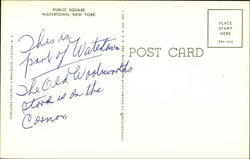 PUBLIC SQUARE
WATERTOWN, NEW YORK
This is
part of Watertown
The Old Woolworths
store is on the
Corner.
POST CARD
PLACE
STAMP
HERE